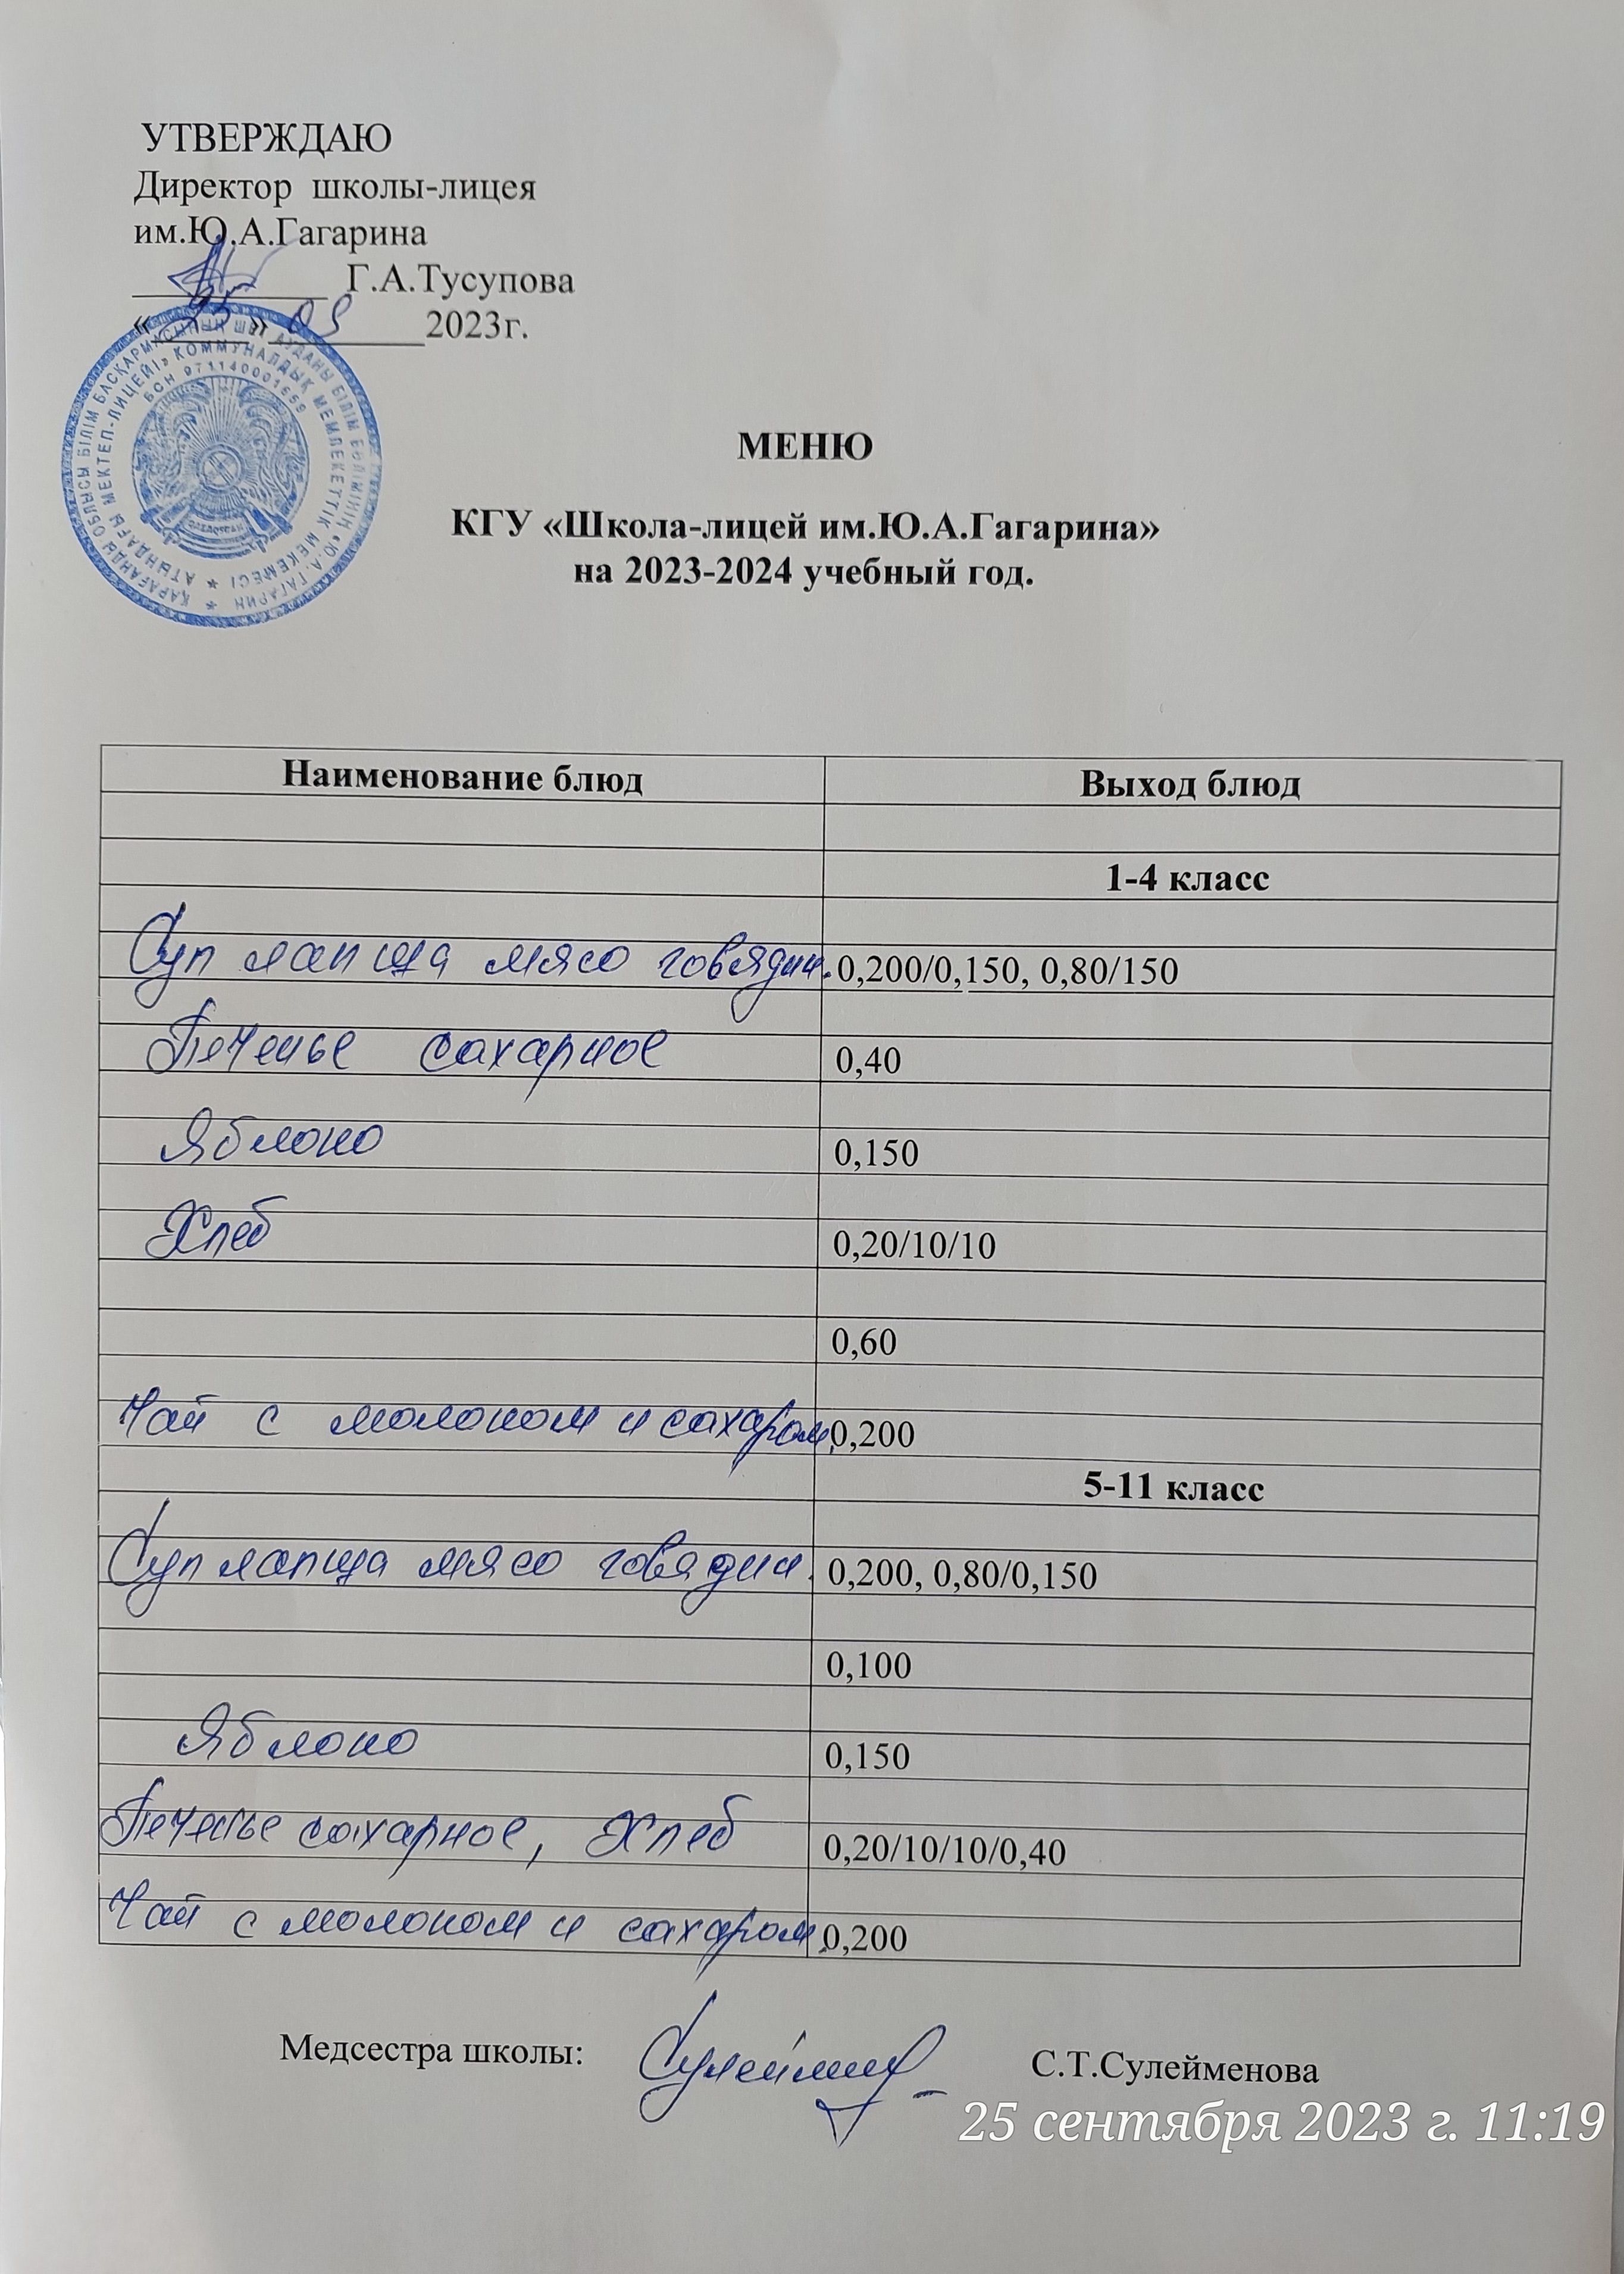 УТВЕРЖДАЮ
Директор школы-лицея
им.Ю.А.Гагарина
Г.А.Тусупова
«25» 09 2023г.
ҚАРАҒАНДЫ ОБЛЫСЫ БІЛІМ БАСҚАРМАСЫНЫҢ ШЕТ АУДАНЫ БІЛІМ БӨЛІМІНІҢ «Ю.А. ГАГАРИН
АТЫНДАҒЫ МЕКТЕП-ЛИЦЕЙІ» КОММУНАЛДЫҚ МЕМЛЕКЕТТІК МЕКЕМЕСІ
БСН 971140001659
МЕНЮ
КГУ «Школа-лицей им.Ю.А.Гагарина»
на 2023-2024 учебный год.
Наименование блюд Выход блюд
1-4 класс
Суп лапша мясо говядин. 0,200/0,150, 0,80/150
Печенье сахарное 0,40
Яблоко 0,150
Хлеб 0,20/10/10
0,60
Чай с молоком и сахаром, 0,200
5-11 класс
Суп лапша мясо говядин. 0,200, 0,80/0,150
0,100
Яблоко 0,150
Печенье сахарное, Хлеб 0,20/10/10/0,40
Чай с молоком и сахаром, 0,200
Медсестра школы: С.Т.Сулейменова
25 сентября 2023 г. 11:19